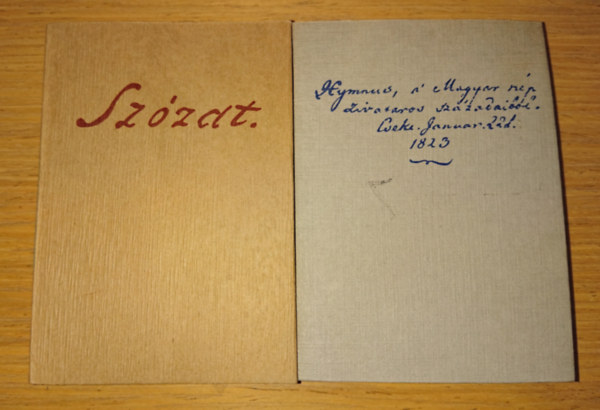 Szózat.
Hymnus, a' Magyar nép
zivataros századaiból.
Cseke. Januar. 22d.
1823